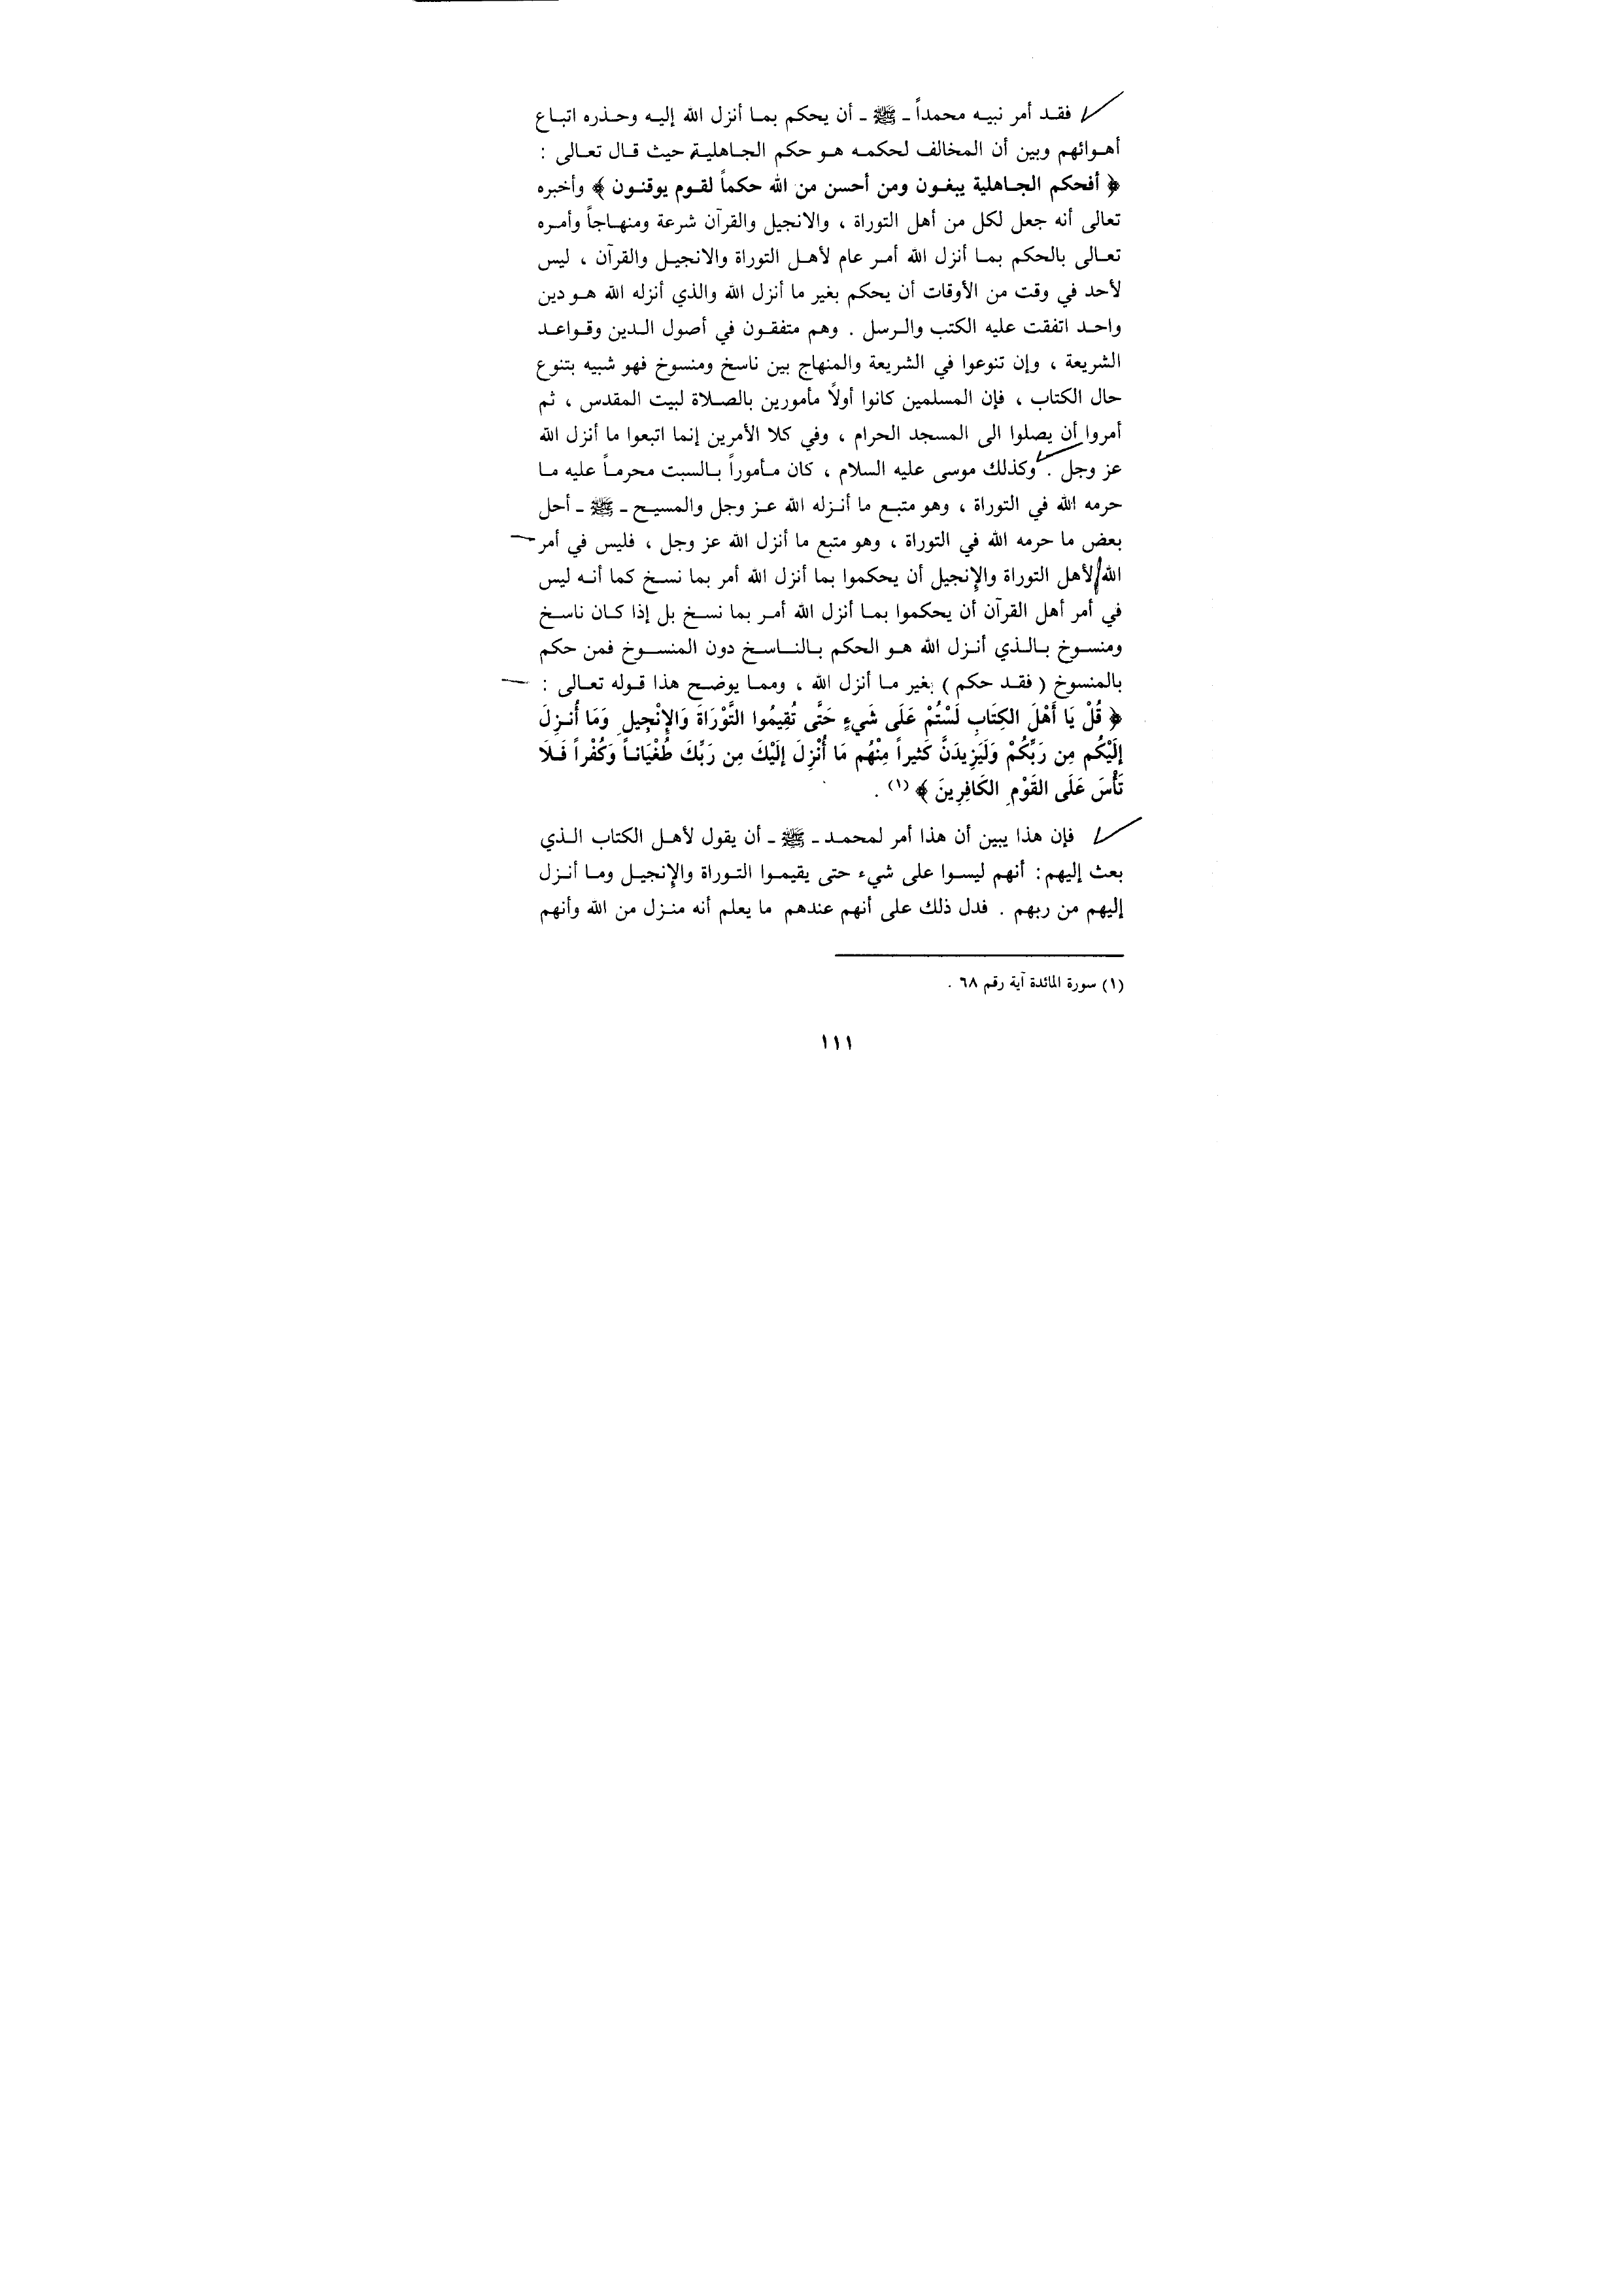 فقد أمر نبيه محمداً ـ ﷺ ـ أن يحكم بما أنزل الله إليه وحذره اتباع
أهوائهم وبين أن المخالف لحكمه هو حكم الجاهلية حيث قال تعالى :
﴿ أفحكم الجاهلية يبغون ومن أحسن من الله حكماً لقوم يوقنون ﴾ وأخبره
تعالى أنه جعل لكل من أهل التوراة ، والانجيل والقرآن شرعة ومنهاجاً وأمره
تعالى بالحكم بما أنزل الله أمر عام لأهل التوراة والانجيل والقرآن ، ليس
لأحد في وقت من الأوقات أن يحكم بغير ما أنزل الله والذي أنزله الله هو دين
واحد اتفقت عليه الكتب والرسل . وهم متفقون في أصول الدين وقواعد
الشريعة ، وإن تنوعوا في الشريعة والمنهاج بين ناسخ ومنسوخ فهو شبيه بتنوع
حال الكتاب ، فإن المسلمين كانوا أولًا مأمورين بالصلاة لبيت المقدس ، ثم
أمروا أن يصلوا الى المسجد الحرام ، وفي كلا الأمرين إنما اتبعوا ما أنزل الله
عز وجل . وكذلك موسى عليه السلام ، كان مأموراً بالسبت محرماً عليه ما
حرمه الله في التوراة ، وهو متبع ما أنزله الله عز وجل والمسيح ـ ﷺ ـ أحل
بعض ما حرمه الله في التوراة ، وهو متبع ما أنزل الله عز وجل ، فليس في أمر
الله لأهل التوراة والإنجيل أن يحكموا بما أنزل الله أمر بما نسخ كما أنه ليس
في أمر أهل القرآن أن يحكموا بما أنزل الله أمر بما نسخ بل إذا كان ناسخ
ومنسوخ بالذي أنزل الله هو الحكم بالناسخ دون المنسوخ فمن حكم
بالمنسوخ ( فقد حكم ) بغير ما أنزل الله ، ومما يوضح هذا قوله تعالى :
﴿ قُلْ يَا أَهْلَ الكِتَابِ لَسْتُمْ عَلَى شَيءٍ حَتَّى تُقِيمُوا التَّوْرَاةَ وَالإِنْجِيلِ وَمَا أُنزِلَ
إلَيْكُم مِن رَبِّكُمْ وَلَيَزِيدَنَّ كَثيراً مِنْهُم مَا أُنْزِلَ إلَيْكَ مِن رَبِّكَ طُغْيَاناً وَكُفْراً فَلَا
تَأْسَ عَلَى القَوْمِ الكَافِرِينَ ﴾ (١) .
فإن هذا يبين أن هذا أمر لمحمد ـ ﷺ ـ أن يقول لأهل الكتاب الذي
بعث إليهم : أنهم ليسوا على شيء حتى يقيموا التوراة والإنجيل وما أنزل
إليهم من ربهم . فدل ذلك على أنهم عندهم ما يعلم أنه منزل من الله وأنهم
(١) سورة المائدة آية رقم ٦٨ .
١١١